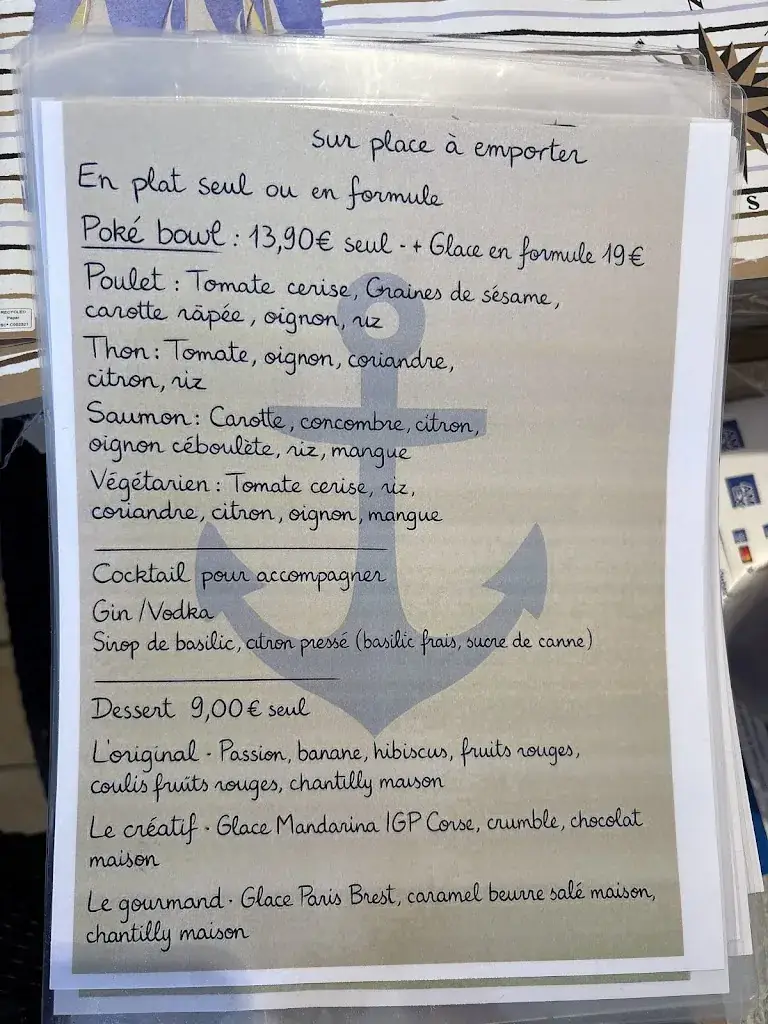 Sur place à emporter
En plat seul ou en formule
Poké bowl : 13,90€ seul - + Glace en formule 19€
Poulet : Tomate cerise, Graines de sésame,
carotte râpée, oignon, riz
Thon : Tomate, oignon, coriandre,
citron, riz
Saumon : Carotte, concombre, citron,
oignon céboulète, riz, mangue
Végétarien : Tomate cerise, riz,
coriandre, citron, oignon, mangue
Cocktail pour accompagner
Gin /Vodka
Sirop de basilic, citron pressé (basilic frais, sucre de canne)
Dessert 9,00€ seul
L'original - Passion, banane, hibiscus, fruits rouges,
coulis fruits rouges, chantilly maison
Le créatif - Glace Mandarina IGP Corse, crumble, chocolat
maison
Le gourmand - Glace Paris Brest, caramel beurre salé maison,
chantilly maison
S